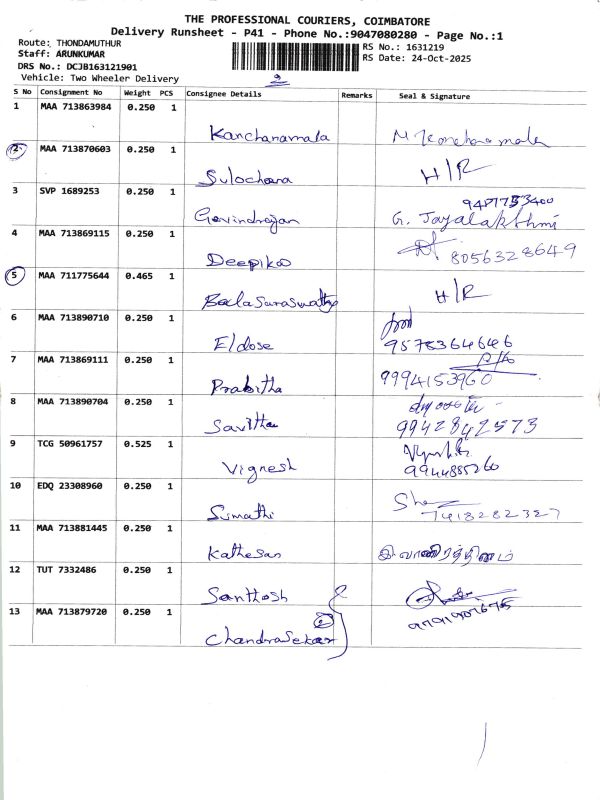 THE PROFESSIONAL COURIERS, COIMBATORE
Delivery Runsheet - P41 - Phone No.:9047080280 - Page No.:1
Route: THONDAMUTHUR RS No.: 1631219
Staff: ARUNKUMAR RS Date: 24-Oct-2025
DRS No.: DCJB163121901
Vehicle: Two Wheeler Delivery
S No Consignment No Weight PCS Consignee Details Remarks Seal & Signature
1 MAA 713863984 0.250 1
Kanchanamala
2 MAA 713870603 0.250 1
Sulochana H/R
3 SVP 1689253 0.250 1
Govindrajan G. Jayalakshmi
4 MAA 713869115 0.250 1
Deepika 8056328649
5 MAA 711775644 0.465 1
Balasaraswathy H/R
6 MAA 713890710 0.250 1
Eldose 9578364646
7 MAA 713869111 0.250 1
Prabitha 9994153960
8 MAA 713890704 0.250 1
Savitha 9942842573
9 TCG 50961757 0.525 1
Vignesh 9944885260
10 EDQ 23308960 0.250 1
Sumathi 7418282327
11 MAA 713881445 0.250 1
Kathesan
12 TUT 7332486 0.250 1
Santhosh
13 MAA 713879720 0.250 1
Chandrasekar 2